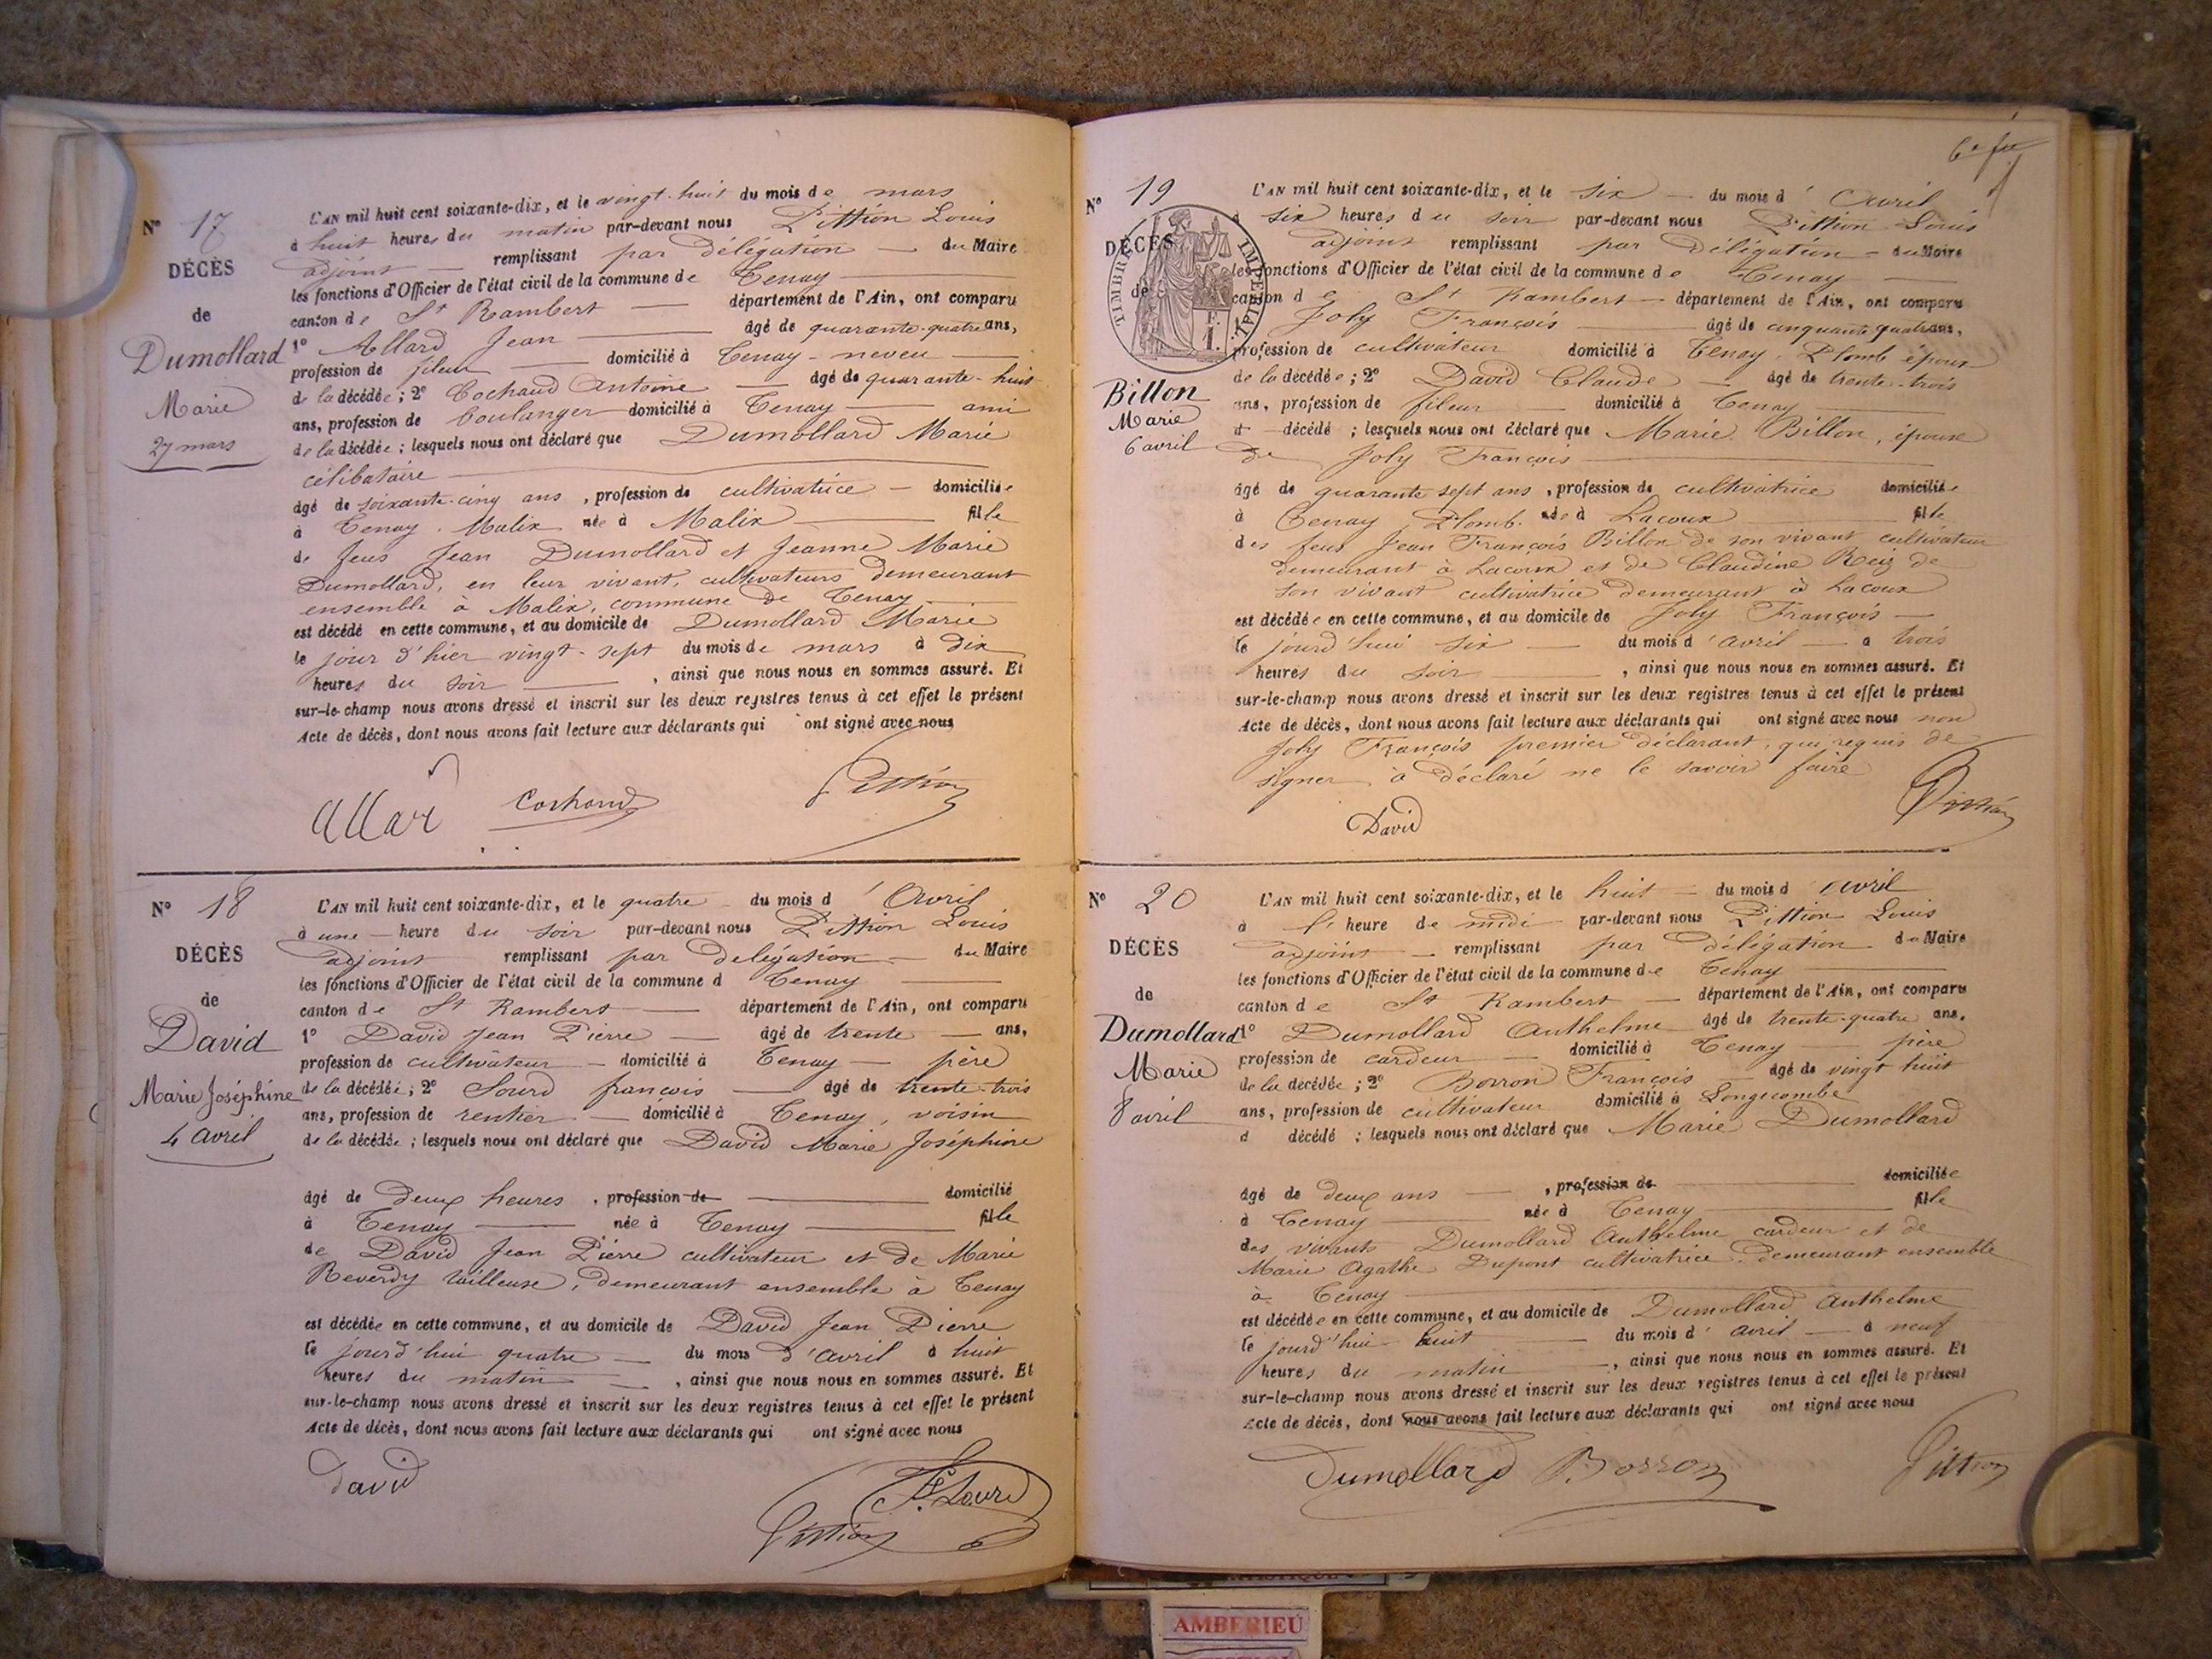 N° 17
DÉCÈS
de
Dumollard
Marie
27 mars
L'AN mil huit cent soixante-dix, et le vingt-huit du mois de mars
à huit heures du matin par-devant nous Pittion Louis
adjoint remplissant par délégation du Maire
les fonctions d'Officier de l'état civil de la commune de Tenay
canton de St Rambert département de l'Ain, ont comparu
1° Allard Jean âgé de quarante-quatre ans,
profession de fileur domicilié à Tenay - neveu
de la décédée ; 2° Cochaud Antoine âgé de quarante-huit
ans, profession de boulanger domicilié à Tenay ami
de la décédée ; lesquels nous ont déclaré que Dumollard Marie
célibataire
âgé de soixante-cinq ans, profession de cultivatrice domiciliée
à Tenay. Malix née à Malix fille
de feus Jean Dumollard et Jeanne Marie
Dumollard, en leur vivant, cultivateurs demeurant
ensemble à Malix, commune de Tenay
est décédé en cette commune, et au domicile de Dumollard Marie
le jour d'hier vingt-sept du mois de mars à dix
heures du soir, ainsi que nous nous en sommes assuré. Et
sur-le-champ nous avons dressé et inscrit sur les deux registres tenus à cet effet le présent
Acte de décès, dont nous avons fait lecture aux déclarants qui ont signé avec nous
Allar Cochaud Pittion
N° 18
DÉCÈS
de
David
Marie Joséphine
4 avril
L'AN mil huit cent soixante-dix, et le quatre du mois d'Avril
à une heure du soir par-devant nous Pittion Louis
adjoint remplissant par délégation du Maire
les fonctions d'Officier de l'état civil de la commune d Tenay
canton de St Rambert département de l'Ain, ont comparu
1° David Jean Pierre âgé de trente ans,
profession de cultivateur domicilié à Tenay père
de la décédée ; 2° Sourd françois âgé de trente-trois
ans, profession de rentier domicilié à Tenay, voisin
de la décédée ; lesquels nous ont déclaré que David Marie Joséphine
âgé de deux heures, profession de domicilié
à Tenay née à Tenay fille
de David Jean Pierre cultivateur et de Marie
Reverdy tailleuse, demeurant ensemble à Tenay
est décédée en cette commune, et au domicile de David Jean Pierre
le jourd'hui quatre du mois d'avril à huit
heures du matin, ainsi que nous nous en sommes assuré. Et
sur-le-champ nous avons dressé et inscrit sur les deux registres tenus à cet effet le présent
Acte de décès, dont nous avons fait lecture aux déclarants qui ont signé avec nous
David
Sourd
Pittion
N° 19
DÉCÈS
de
TIMBRE IMPERIAL
Billon
Marie
6 avril
L'AN mil huit cent soixante-dix, et le six du mois d'Avril
à six heures du soir par-devant nous Pittion Louis
adjoint remplissant par Délégation du Maire
les fonctions d'Officier de l'état civil de la commune de Tenay
canton de St Rambert département de l'Ain, ont comparu
Joly François âgé de cinquante quatre ans,
profession de cultivateur domicilié à Tenay. Plomb époux
de la décédée ; 2° David Claude âgé de trente-trois
ans, profession de fileur domicilié à Tenay
d décédé ; lesquels nous ont déclaré que Marie Billon, épouse
de Joly François
âgé de quarante sept ans, profession de cultivatrice domiciliée
à Tenay, Plomb. née à Lacoux fille
des feus Jean François Billon de son vivant cultivateur
demeurant à Lacoux et de Claudine Reig de
son vivant cultivatrice demeurant à Lacoux
est décédée en cette commune, et au domicile de Joly François
le jourd'hui six du mois d'avril à trois
heures du soir, ainsi que nous nous en sommes assuré. Et
sur-le-champ nous avons dressé et inscrit sur les deux registres tenus à cet effet le présent
Acte de décès, dont nous avons fait lecture aux déclarants qui ont signé avec nous non
Joly François premier déclarant, qui requis de
signer à déclaré ne le savoir faire
David Pittion
N° 20
DÉCÈS
de
Dumollard
Marie
8 avril
L'AN mil huit cent soixante-dix, et le huit du mois d'avril
à l' heure de midi par-devant nous Pittion Louis
adjoint remplissant par délégation du Maire
les fonctions d'Officier de l'état civil de la commune de Tenay
canton de St Rambert département de l'Ain, ont comparu
1° Dumollard Anthelme âgé de trente-quatre ans.
profession de cardeur domicilié à Tenay père
de la décédée ; 2° Borron François âgé de vingt huit
ans, profession de cultivateur domicilié à Longecombe
d décédé ; lesquels nous ont déclaré que Marie Dumollard
âgé de deux ans, profession de domiciliée
à Tenay née à Tenay fille
des vivants Dumollard Anthelme cardeur et de
Marie Agathe Dupont cultivatrice, demeurant ensemble
à Tenay
est décédée en cette commune, et au domicile de Dumollard Anthelme
le jourd'hui huit du mois d'avril à neuf
heures du matin, ainsi que nous nous en sommes assuré. Et
sur-le-champ nous avons dressé et inscrit sur les deux registres tenus à cet effet le présent
Acte de décès, dont nous avons fait lecture aux déclarants qui ont signé avec nous
Dumollard Borron Pittion
AMBERIEU